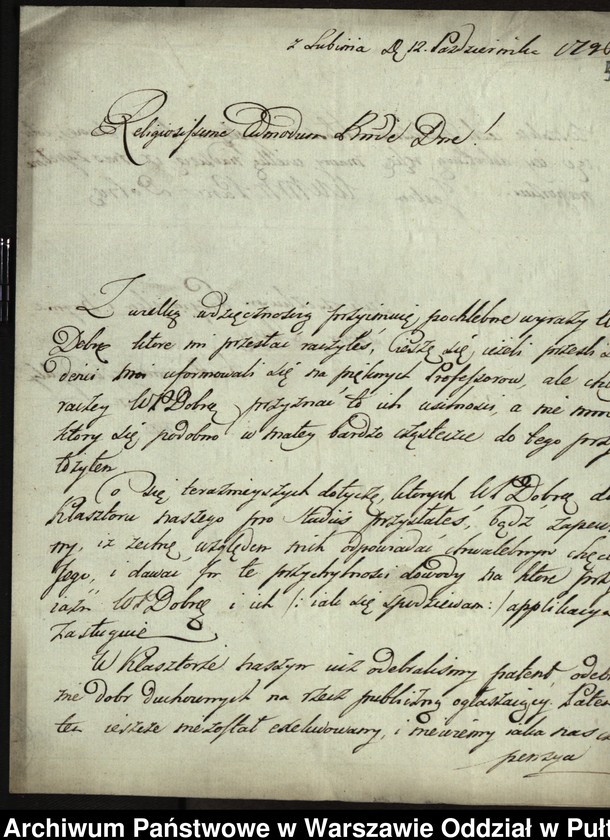 z Lubinia D. 12. Października 1796
Religiosissime Admodum Rnde Dne!
Z wielką wdzięcznością przyimuię pochlebne wyrazy W
Dobrę które mi przesłać raczyłeś, cieszę się, ieżeli przeszli
denci moi uformowali się na pięknych Professorow, ale
raczey WP Dobrę przyznać to ich usilności, a nie
ktory się podobno w małey bardzo cząsteczce do tego przy
łożyłem
Co się terazneyszych dotycze, ktorych WP Dobrę do
Klasztoru naszego pro studiis przysłałeś, bądź zapew
ny, iż zechcę względem nich odpowiadać chwalebnym chęc
Jego, i dawać im te przychylności dowody na ktore
iaźń WP Dobrę i ich /: iak się spodziewam :/ applikacya
zasługuie
W Klasztorze naszym iuż odebralismy patent, odebra
nie dobr duchownych na rzecz publiczną ogłaszaiący. Paten
ten ieszcze niezostał exekwowany, i niewiemy iaka nas
pensya
Archiwum Państwowe w Warszawie Oddział w Puł